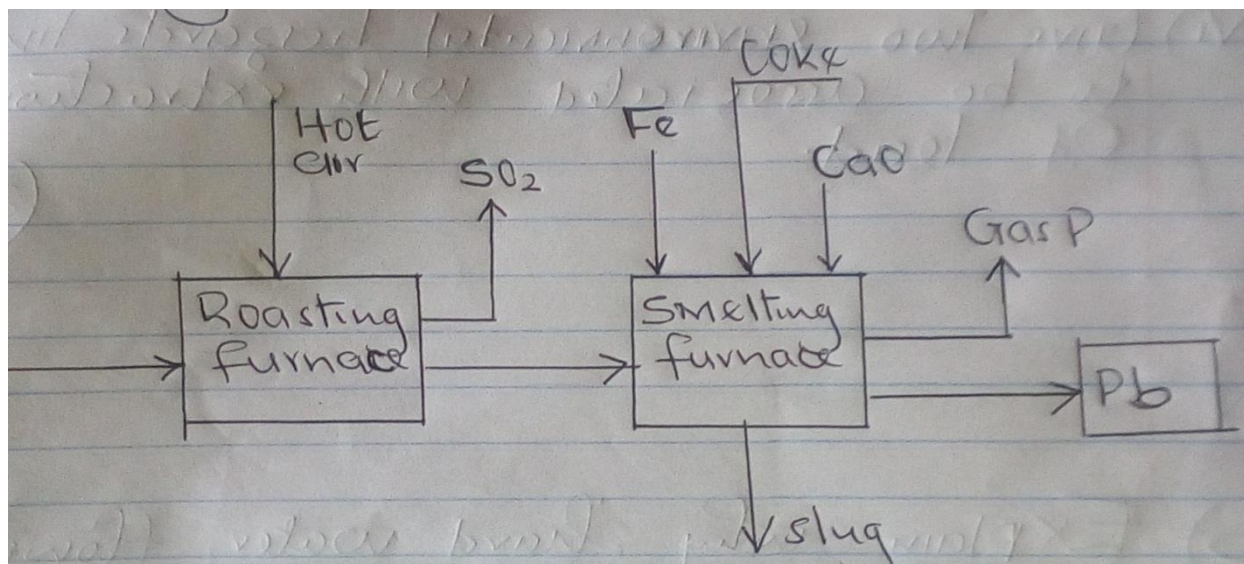 Coke
Hot
air
Fe
SO₂
CaO
Gas P
Roasting
furnace
Smelting
furnace
Pb
slug